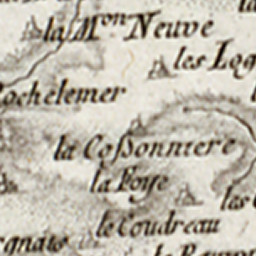 la M.on Neuve
les Log
ochelemer
la Cossonniere
la Foye
las
le Coudreau
gnats